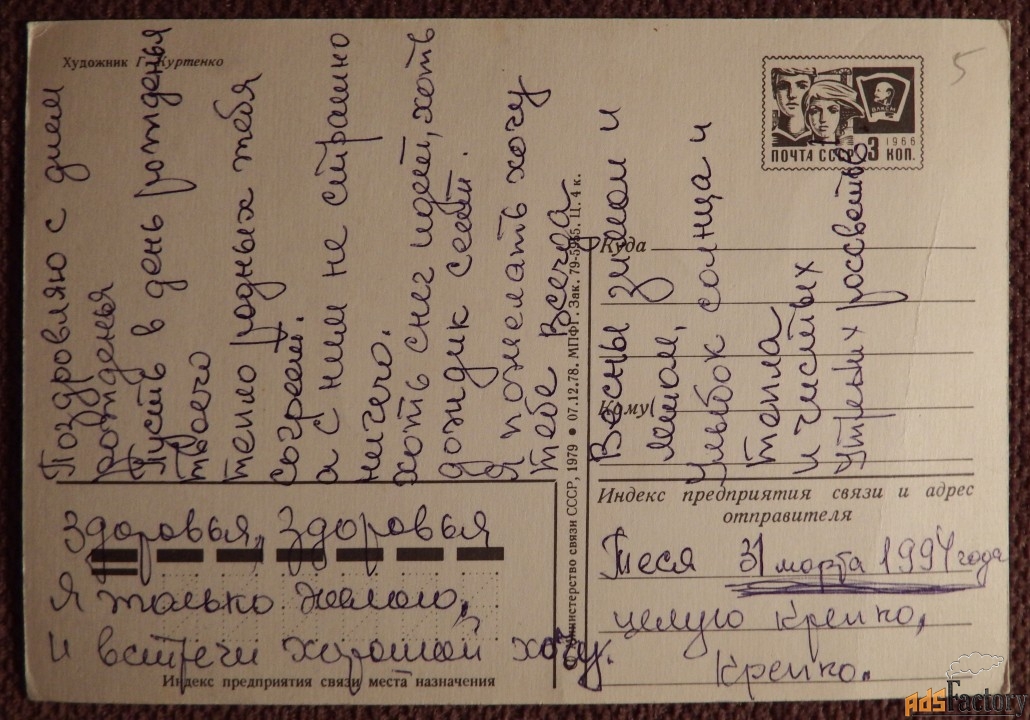 Художник Г. Куртенко
5
ВЛКСМ
1966
ПОЧТА СССР 3 КОП.
Поздровляю с днем
рожденья
Пусть в день рожденья
твоего
тепло родных тебя
согреет.
а с ним не страшно
ничего.
хоть снег идет, хоть
дождик сеет.
Я пожелать хочу
тебе Всегда
Весны зимой и
летом,
улыбок солнца и
тепла
и чистых
утреных росветов
Министерство связи СССР, 1979 ● 07.12.78. МПФГ. Зак. 79-5955. Ц. 4 к.
Куда
Кому
Индекс предприятия связи и адрес
отправителя
здоровья, здоровья
Я только желаю,
и встречи хорошей хочу.
Индекс предприятия связи места назначения
Теся 31 марта 1994 года
целую крепко,
крепко.
AdsFactory